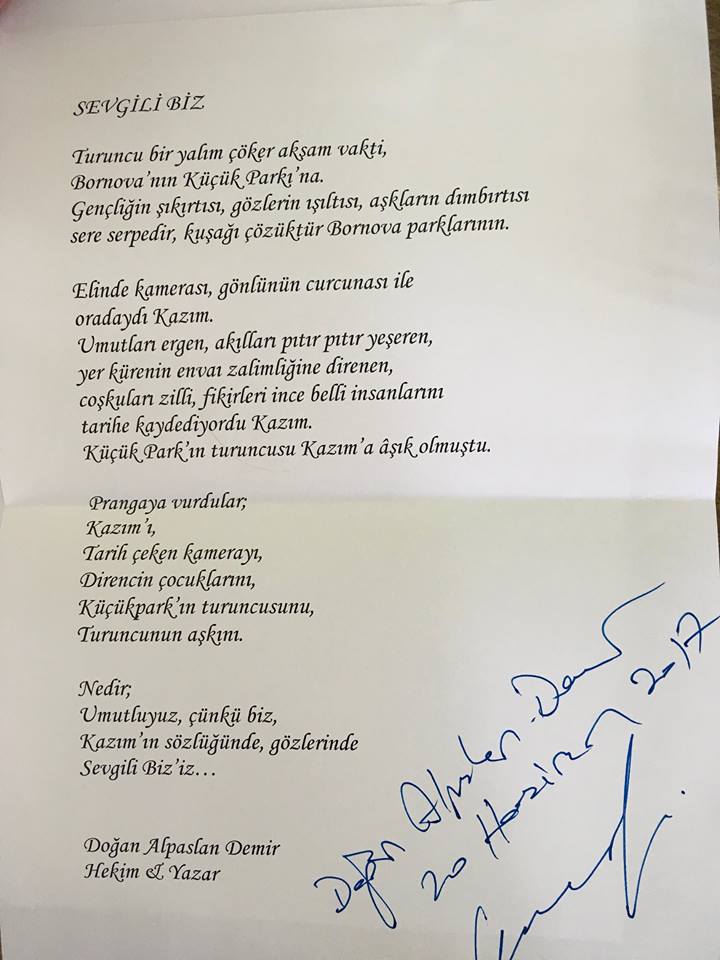 SEVGİLİ BİZ
Turuncu bir yalım çöker akşam vakti,
Bornova'nın Küçük Parkı'na.
Gençliğin şıkırtısı, gözlerin ışıltısı, aşkların dımbırtısı
sere serpedir, kuşağı çözüktür Bornova parklarının.
Elinde kamerası, gönlünün curcunası ile
oradaydı Kazım.
Umutları ergen, akılları pıtır pıtır yeşeren,
yer kürenin envaı zalimliğine direnen,
coşkuları zilli, fikirleri ince belli insanlarını
tarihe kaydediyordu Kazım.
Küçük Park'ın turuncusu Kazım'a âşık olmuştu.
Prangaya vurdular;
Kazım'ı,
Tarih çeken kamerayı,
Direncin çocuklarını,
Küçükpark'ın turuncusunu,
Turuncunun aşkını.
Nedir;
Umutluyuz, çünkü biz,
Kazım'ın sözlüğünde, gözlerinde
Sevgili Biz'iz...
Doğan Alpaslan Demir
Hekim & Yazar
Doğan Alpaslan Demir
20 Haziran 2017